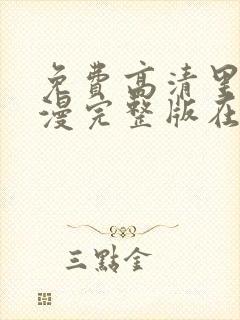 免费高清里
漫完整版在
三點金